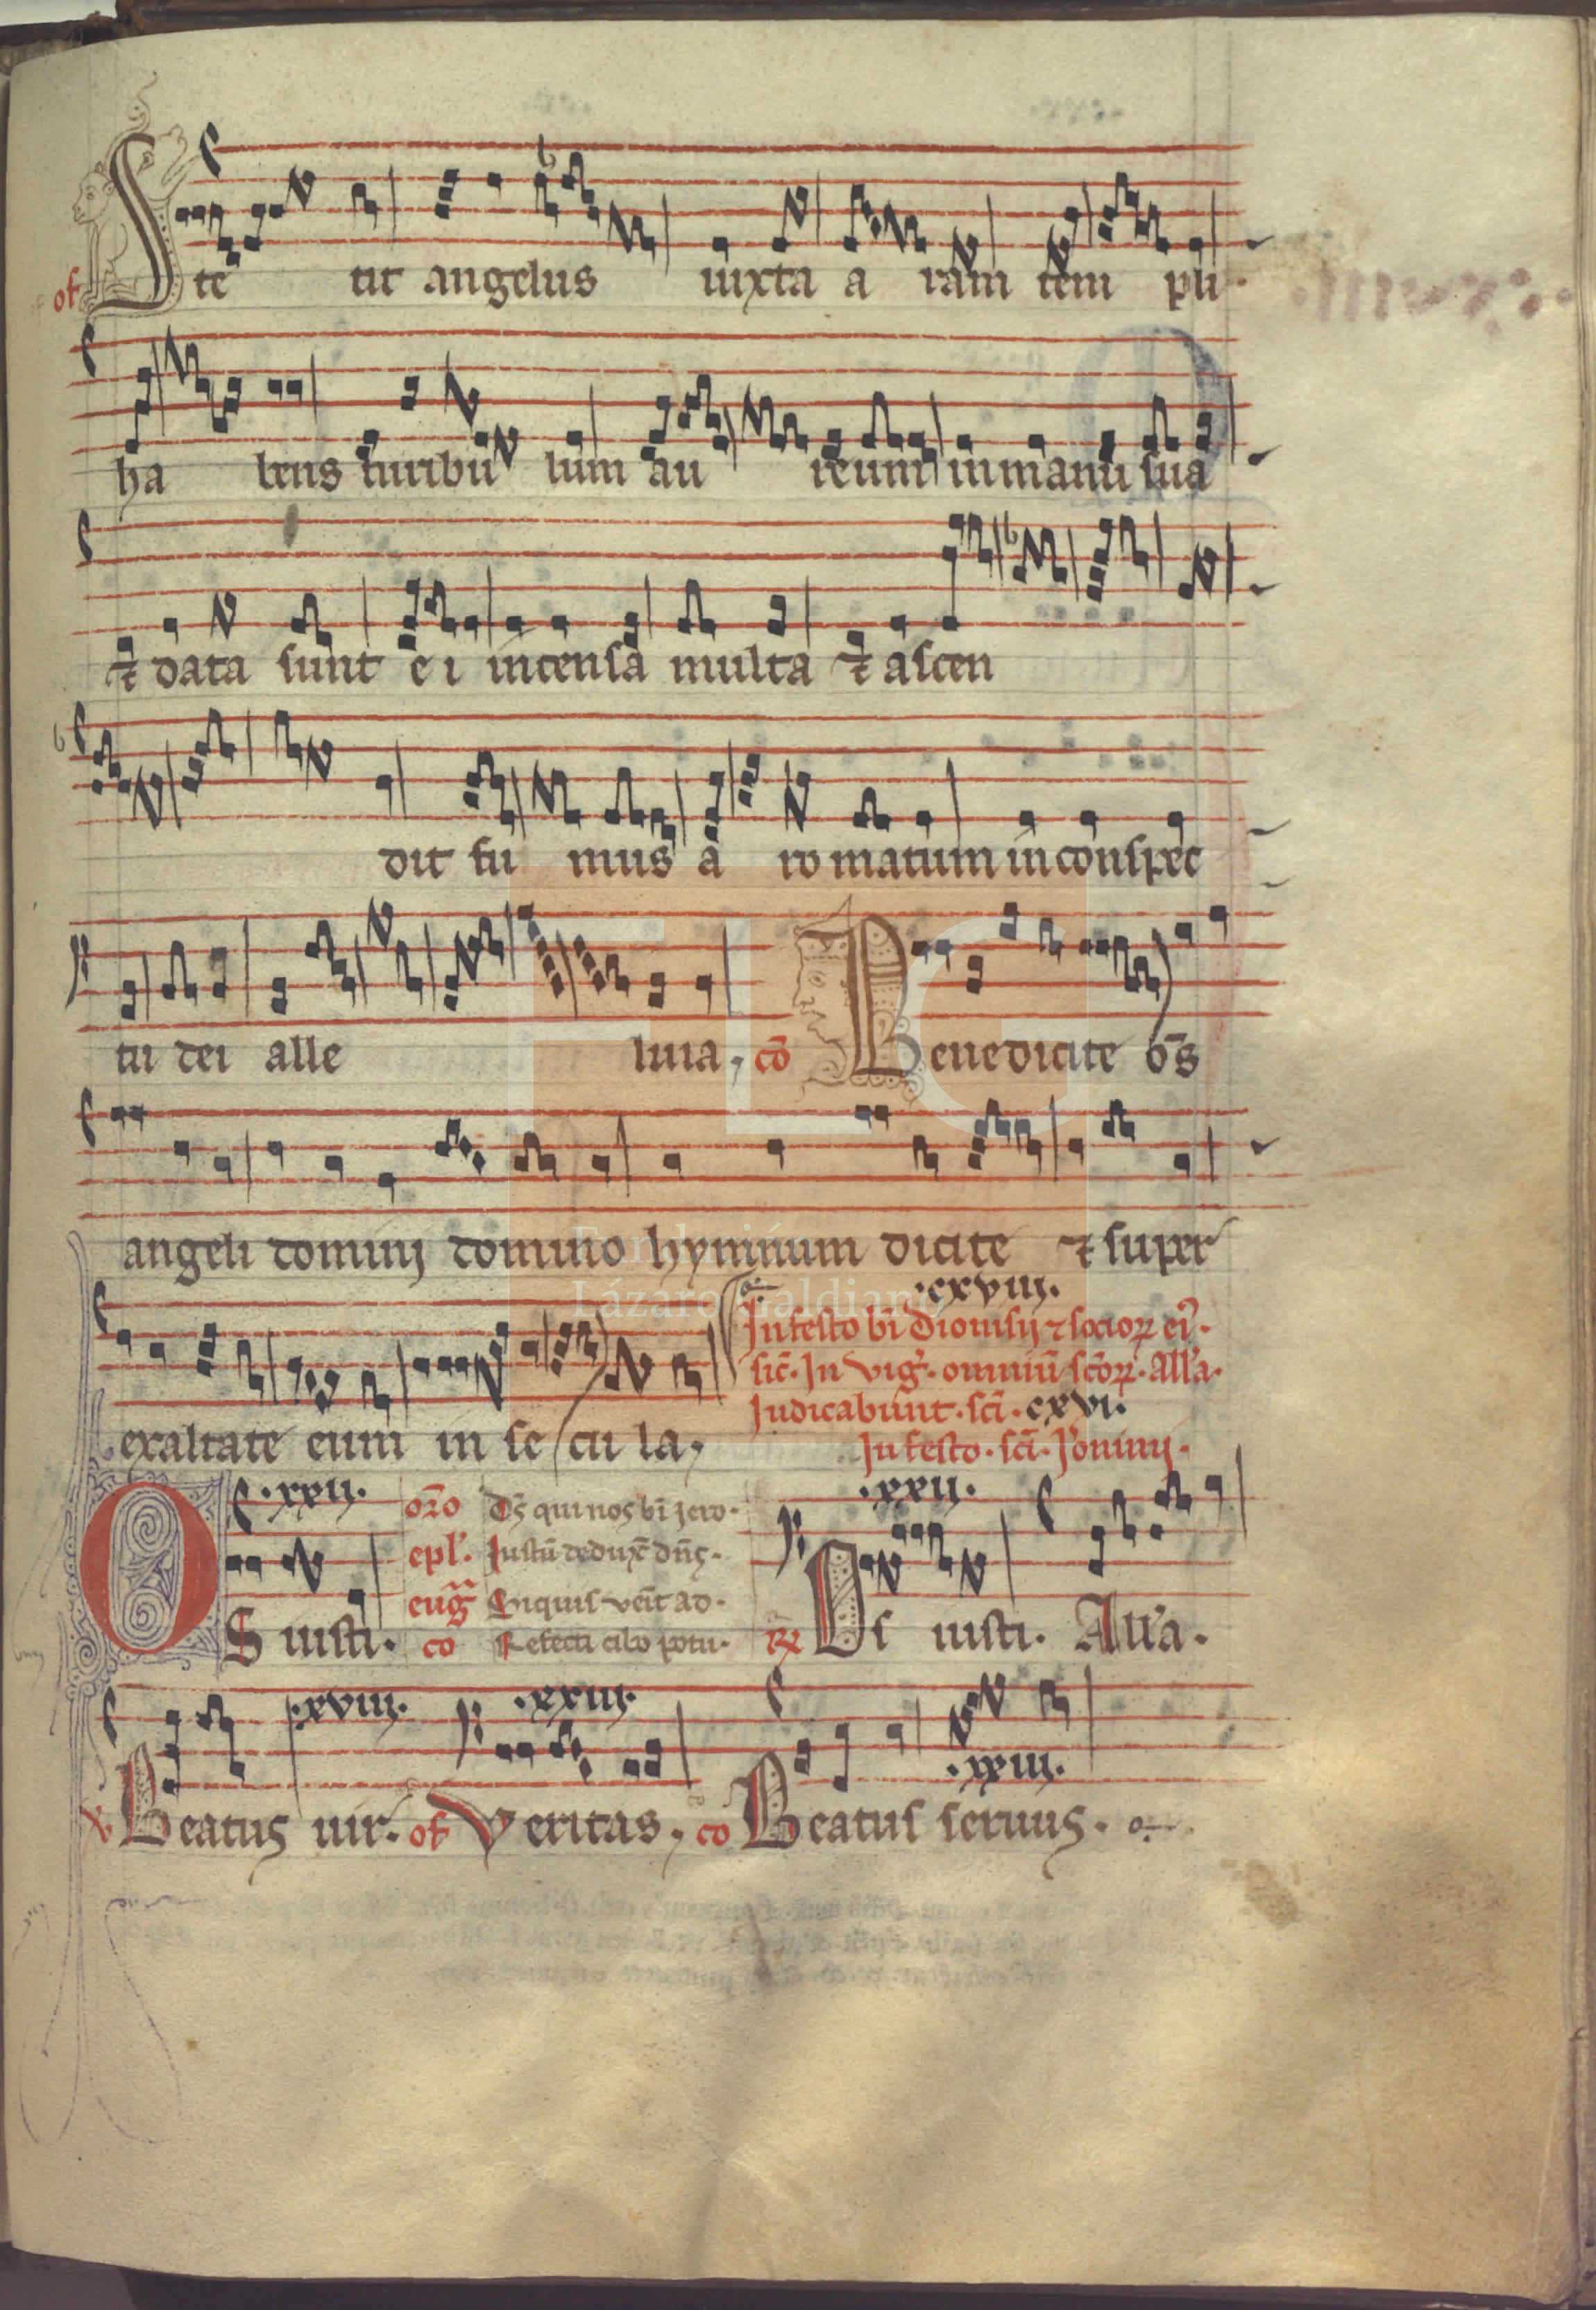 of Ste tit angelus iuxta a ram tem pli.
ha bens turibu lum au reum in manu sua
⁊ data sunt e i incensa multa ⁊ ascen
dit fu mus a ro matum in conspec
tu dei alle luia, cō Benedicite om̄s
angeli dominj domino hymnum dicite ⁊ super
exaltate eum in se cu la,
.cxviii.
In festo bī Dionisij ⁊ socioꝝ ei᾽.
sic̄. In viḡ. omniū sc̄oꝝ. All'a.
Iudicabunt. sc̄i. cxvi.
In festo. sc̄i. J'onimi.
.xxii.
OS iusti.
or̄o Ds̄ qui nos bī iero.
epl'. Iustū deduxc̄ dn̄s.
euḡ Siquis venīt ad.
co Refecti cibo potu.
.xxii.
℞ Os iusti. All'a.
.xviii. .xxiii.
℣ Beatus uir. of Veritas, co Beatus seruus.
.xxiii.
Fundación
Lázaro Galdiano
FLG